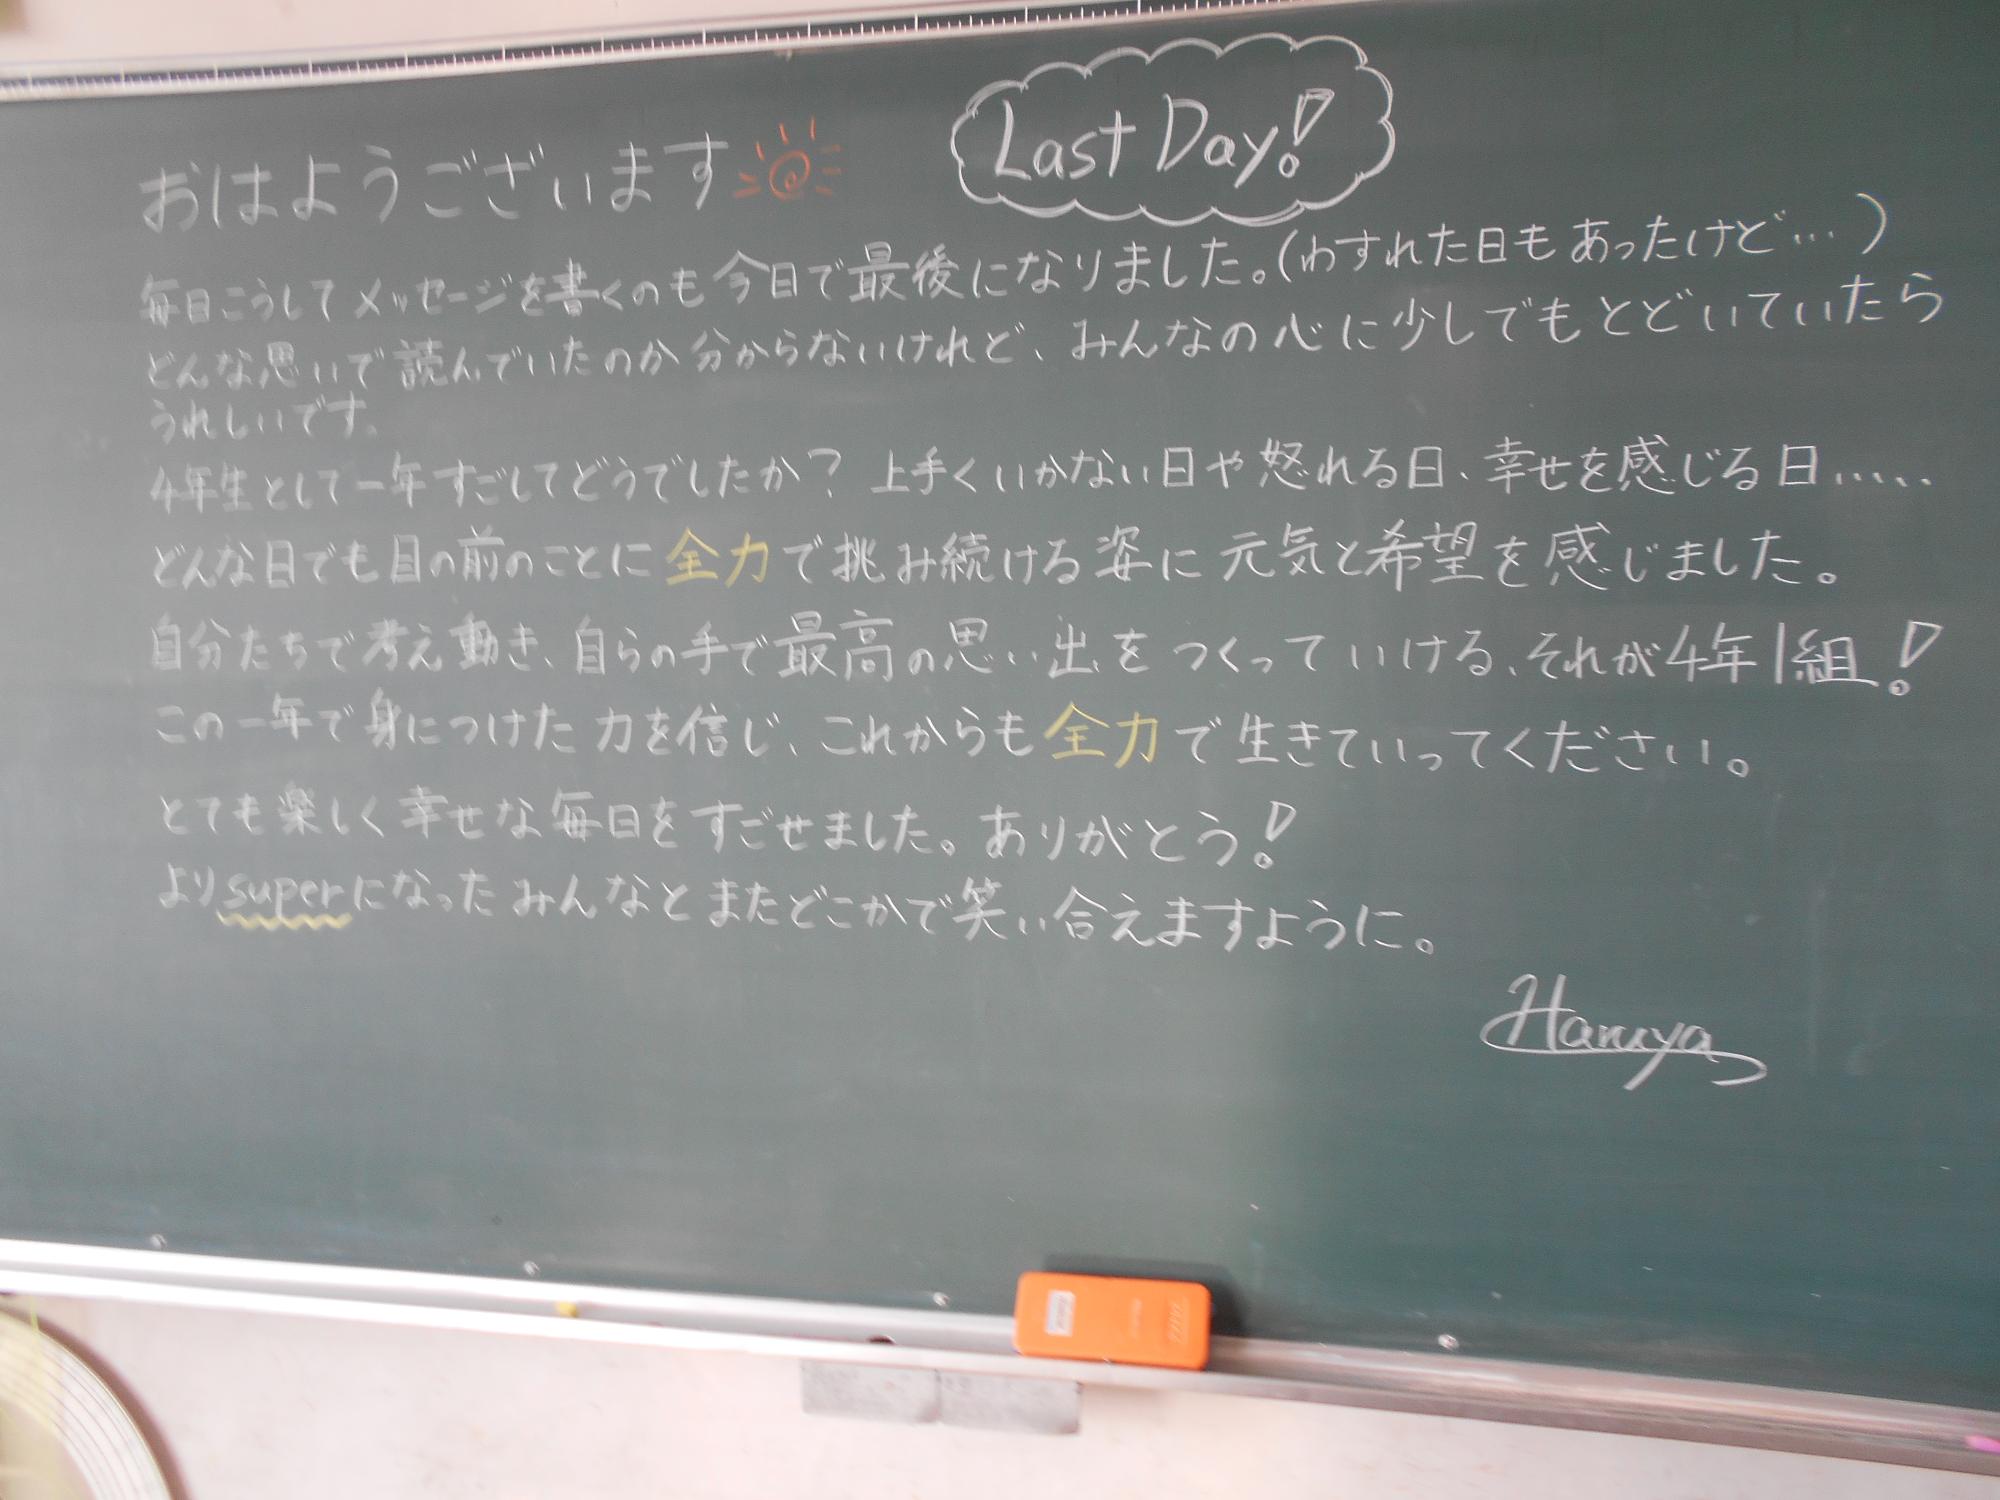 Last Day!
おはようございます
毎日こうしてメッセージを書くのも今日で最後になりました。(わすれた日もあったけど…)
どんな思いで読んでいたのか分からないけれど、みんなの心に少しでもとどいていたら
うれしいです。
4年生として一年すごしてどうでしたか?上手くいかない日や怒れる日、幸せを感じる日.....
どんな日でも目の前のことに全力で挑み続ける姿に元気と希望を感じました。
自分たちで考え動き、自らの手で最高の思い出をつくっていける、それが4年1組!
この一年で身につけた力を信じ、これからも全力で生きていってください。
とても楽しく幸せな毎日をすごせました。ありがとう!
よりsuperになったみんなとまたどこかで笑い合えますように。
Haruya